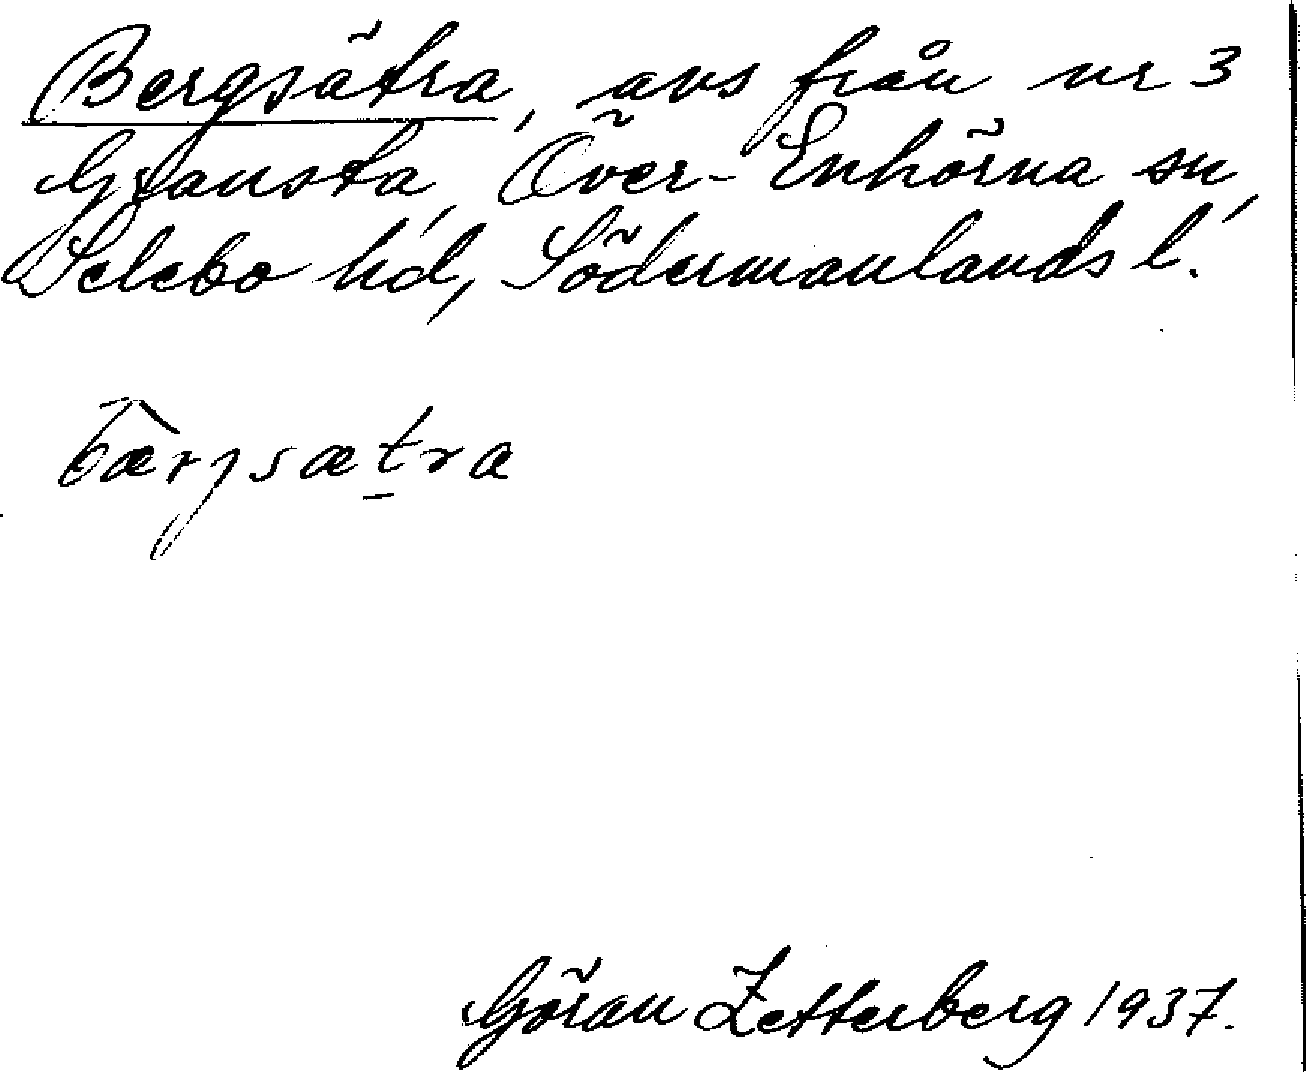 Bergsätra, avs från nr 3
Grausta, Över-Enhörna sn,
Selebo hd, Södermanlands l.
bæ̀rjsætra
Göran Zetterberg 1937.